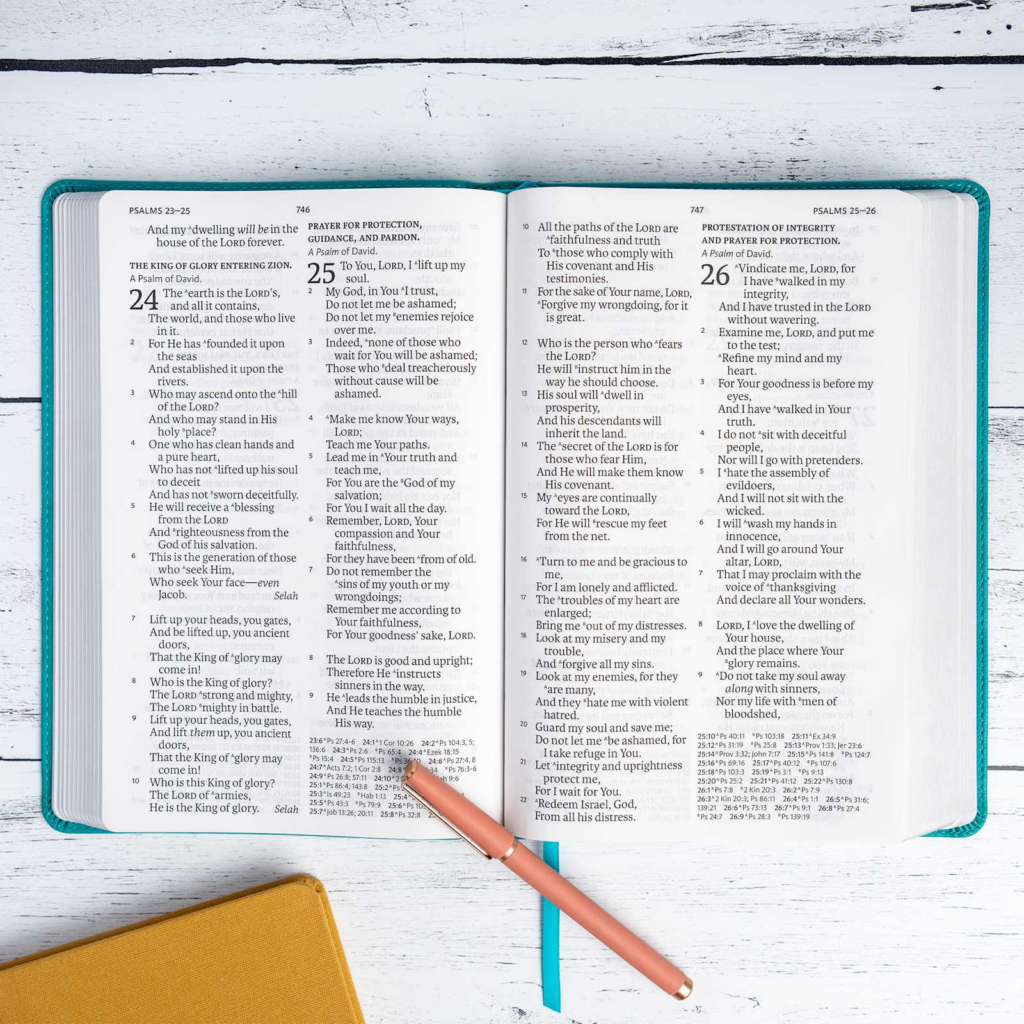 PSALMS 23—25 746
And my ᴬdwelling will be in the
house of the LORD forever.
THE KING OF GLORY ENTERING ZION.
A Psalm of David.
24 The ᴬearth is the LORD's,
and all it contains,
The world, and those who live
in it.
2 For He has ᴬfounded it upon
the seas
And established it upon the
rivers.
3 Who may ascend onto the ᴬhill
of the LORD?
And who may stand in His
holy ᴮplace?
4 One who has clean hands and
a pure heart,
Who has not ᴬlifted up his soul
to deceit
And has not ᴮsworn deceitfully.
5 He will receive a ᴬblessing
from the LORD
And ᴮrighteousness from the
God of his salvation.
6 This is the generation of those
who ᴬseek Him,
Who seek Your face—even
Jacob. Selah
7 Lift up your heads, you gates,
And be lifted up, you ancient
doors,
That the King of ᴬglory may
come in!
8 Who is the King of glory?
The LORD ᴬstrong and mighty,
The LORD ᴮmighty in battle.
9 Lift up your heads, you gates,
And lift them up, you ancient
doors,
That the King of ᴬglory may
come in!
10 Who is this King of glory?
The LORD of ᴬarmies,
He is the King of glory. Selah
PRAYER FOR PROTECTION,
GUIDANCE, AND PARDON.
A Psalm of David.
25 To You, LORD, I ᴬlift up my
soul.
2 My God, in You ᴬI trust,
Do not let me be ashamed;
Do not let my ᴮenemies rejoice
over me.
3 Indeed, ᴬnone of those who
wait for You will be ashamed;
Those who ᴮdeal treacherously
without cause will be
ashamed.
4 ᴬMake me know Your ways,
LORD;
Teach me Your paths.
5 Lead me in ᴬYour truth and
teach me,
For You are the ᴮGod of my
salvation;
For You I wait all the day.
6 Remember, LORD, Your
compassion and Your
faithfulness,
For they have been ᴬfrom of old.
7 Do not remember the
ᴬsins of my youth or my
wrongdoings;
Remember me according to
Your faithfulness,
For Your goodness' sake, LORD.
8 The LORD is good and upright;
Therefore He ᴬinstructs
sinners in the way.
9 He ᴬleads the humble in justice,
And He teaches the humble
His way.
23:6 ᴬPs 27:4-6 24:1 ᴬ1 Cor 10:26 24:2 ᴬPs 104:3, 5;
136:6 24:3 ᴬPs 2:6 ᴮPs 65:4 24:4 ᴬEzek 18:15
ᴮPs 15:4 24:5 ᴬPs 115:13 ᴮPs 24:6 ᴬPs 27:4, 8
24:7 ᴬActs 7:2; 1 Cor 2:8 ᴮPs 76:3-6
24:9 ᴬPs 26:8; 57:11 24:10 9:6
25:1 ᴬPs 86:4; 143:8 25:2
25:3 ᴬIs 49:23 ᴮHab 1:13
25:5 ᴬPs 43:3 ᴮPs 79:9 25:6 ᴬPs
25:7 ᴬJob 13:26; 20:11 25:8
747 PSALMS 25—26
10 All the paths of the LORD are
ᴬfaithfulness and truth
To ᴮthose who comply with
His covenant and His
testimonies.
11 For the sake of Your name, LORD,
ᴬForgive my wrongdoing, for it
is great.
12 Who is the person who ᴬfears
the LORD?
He will ᴮinstruct him in the
way he should choose.
13 His soul will ᴬdwell in
prosperity,
And his descendants will
inherit the land.
14 The ᴬsecret of the LORD is for
those who fear Him,
And He will make them know
His covenant.
15 My ᴬeyes are continually
toward the LORD,
For He will ᴮrescue my feet
from the net.
16 ᴬTurn to me and be gracious to
me,
For I am lonely and afflicted.
17 The ᴬtroubles of my heart are
enlarged;
Bring me ᴮout of my distresses.
18 Look at my misery and my
trouble,
And ᴬforgive all my sins.
19 Look at my enemies, for they
ᴬare many,
And they ᴮhate me with violent
hatred.
20 Guard my soul and save me;
Do not let me ᴬbe ashamed, for
I take refuge in You.
21 Let ᴬintegrity and uprightness
protect me,
For I wait for You.
22 ᴬRedeem Israel, God,
From all his distress.
PROTESTATION OF INTEGRITY
AND PRAYER FOR PROTECTION.
A Psalm of David.
26 ᴬVindicate me, LORD, for
I have ᴮwalked in my
integrity,
And I have trusted in the LORD
without wavering.
2 Examine me, LORD, and put me
to the test;
ᴬRefine my mind and my
heart.
3 For Your goodness is before my
eyes,
And I have ᴬwalked in Your
truth.
4 I do not ᴬsit with deceitful
people,
Nor will I go with pretenders.
5 I ᴬhate the assembly of
evildoers,
And I will not sit with the
wicked.
6 I will ᴬwash my hands in
innocence,
And I will go around Your
altar, LORD,
7 That I may proclaim with the
voice of ᴬthanksgiving
And declare all Your wonders.
8 LORD, I ᴬlove the dwelling of
Your house,
And the place where Your
ᴮglory remains.
9 ᴬDo not take my soul away
along with sinners,
Nor my life with ᴮmen of
bloodshed,
25:10 ᴬPs 40:11 ᴮPs 103:18 25:11 ᴬEx 34:9
25:12 ᴬPs 31:19 ᴮPs 25:8 25:13 ᴬProv 1:33; Jer 23:6
25:14 ᴬProv 3:32; John 7:17 25:15 ᴬPs 141:8 ᴮPs 124:7
25:16 ᴬPs 69:16 25:17 ᴬPs 40:12 ᴮPs 107:6
25:18 ᴬPs 103:3 25:19 ᴬPs 3:1 ᴮPs 9:13
25:20 ᴬPs 25:2 25:21 ᴬPs 41:12 25:22 ᴬPs 130:8
26:1 ᴬPs 7:8 ᴮ2 Kin 20:3 26:2 ᴬPs 7:9
26:3 ᴬ2 Kin 20:3; Ps 86:11 26:4 ᴬPs 1:1 26:5 ᴬPs 31:6;
139:21 26:6 ᴬPs 73:13 26:7 ᴬPs 9:1 26:8 ᴬPs 27:4
ᴮPs 24:7 26:9 ᴬPs 28:3 ᴮPs 139:19